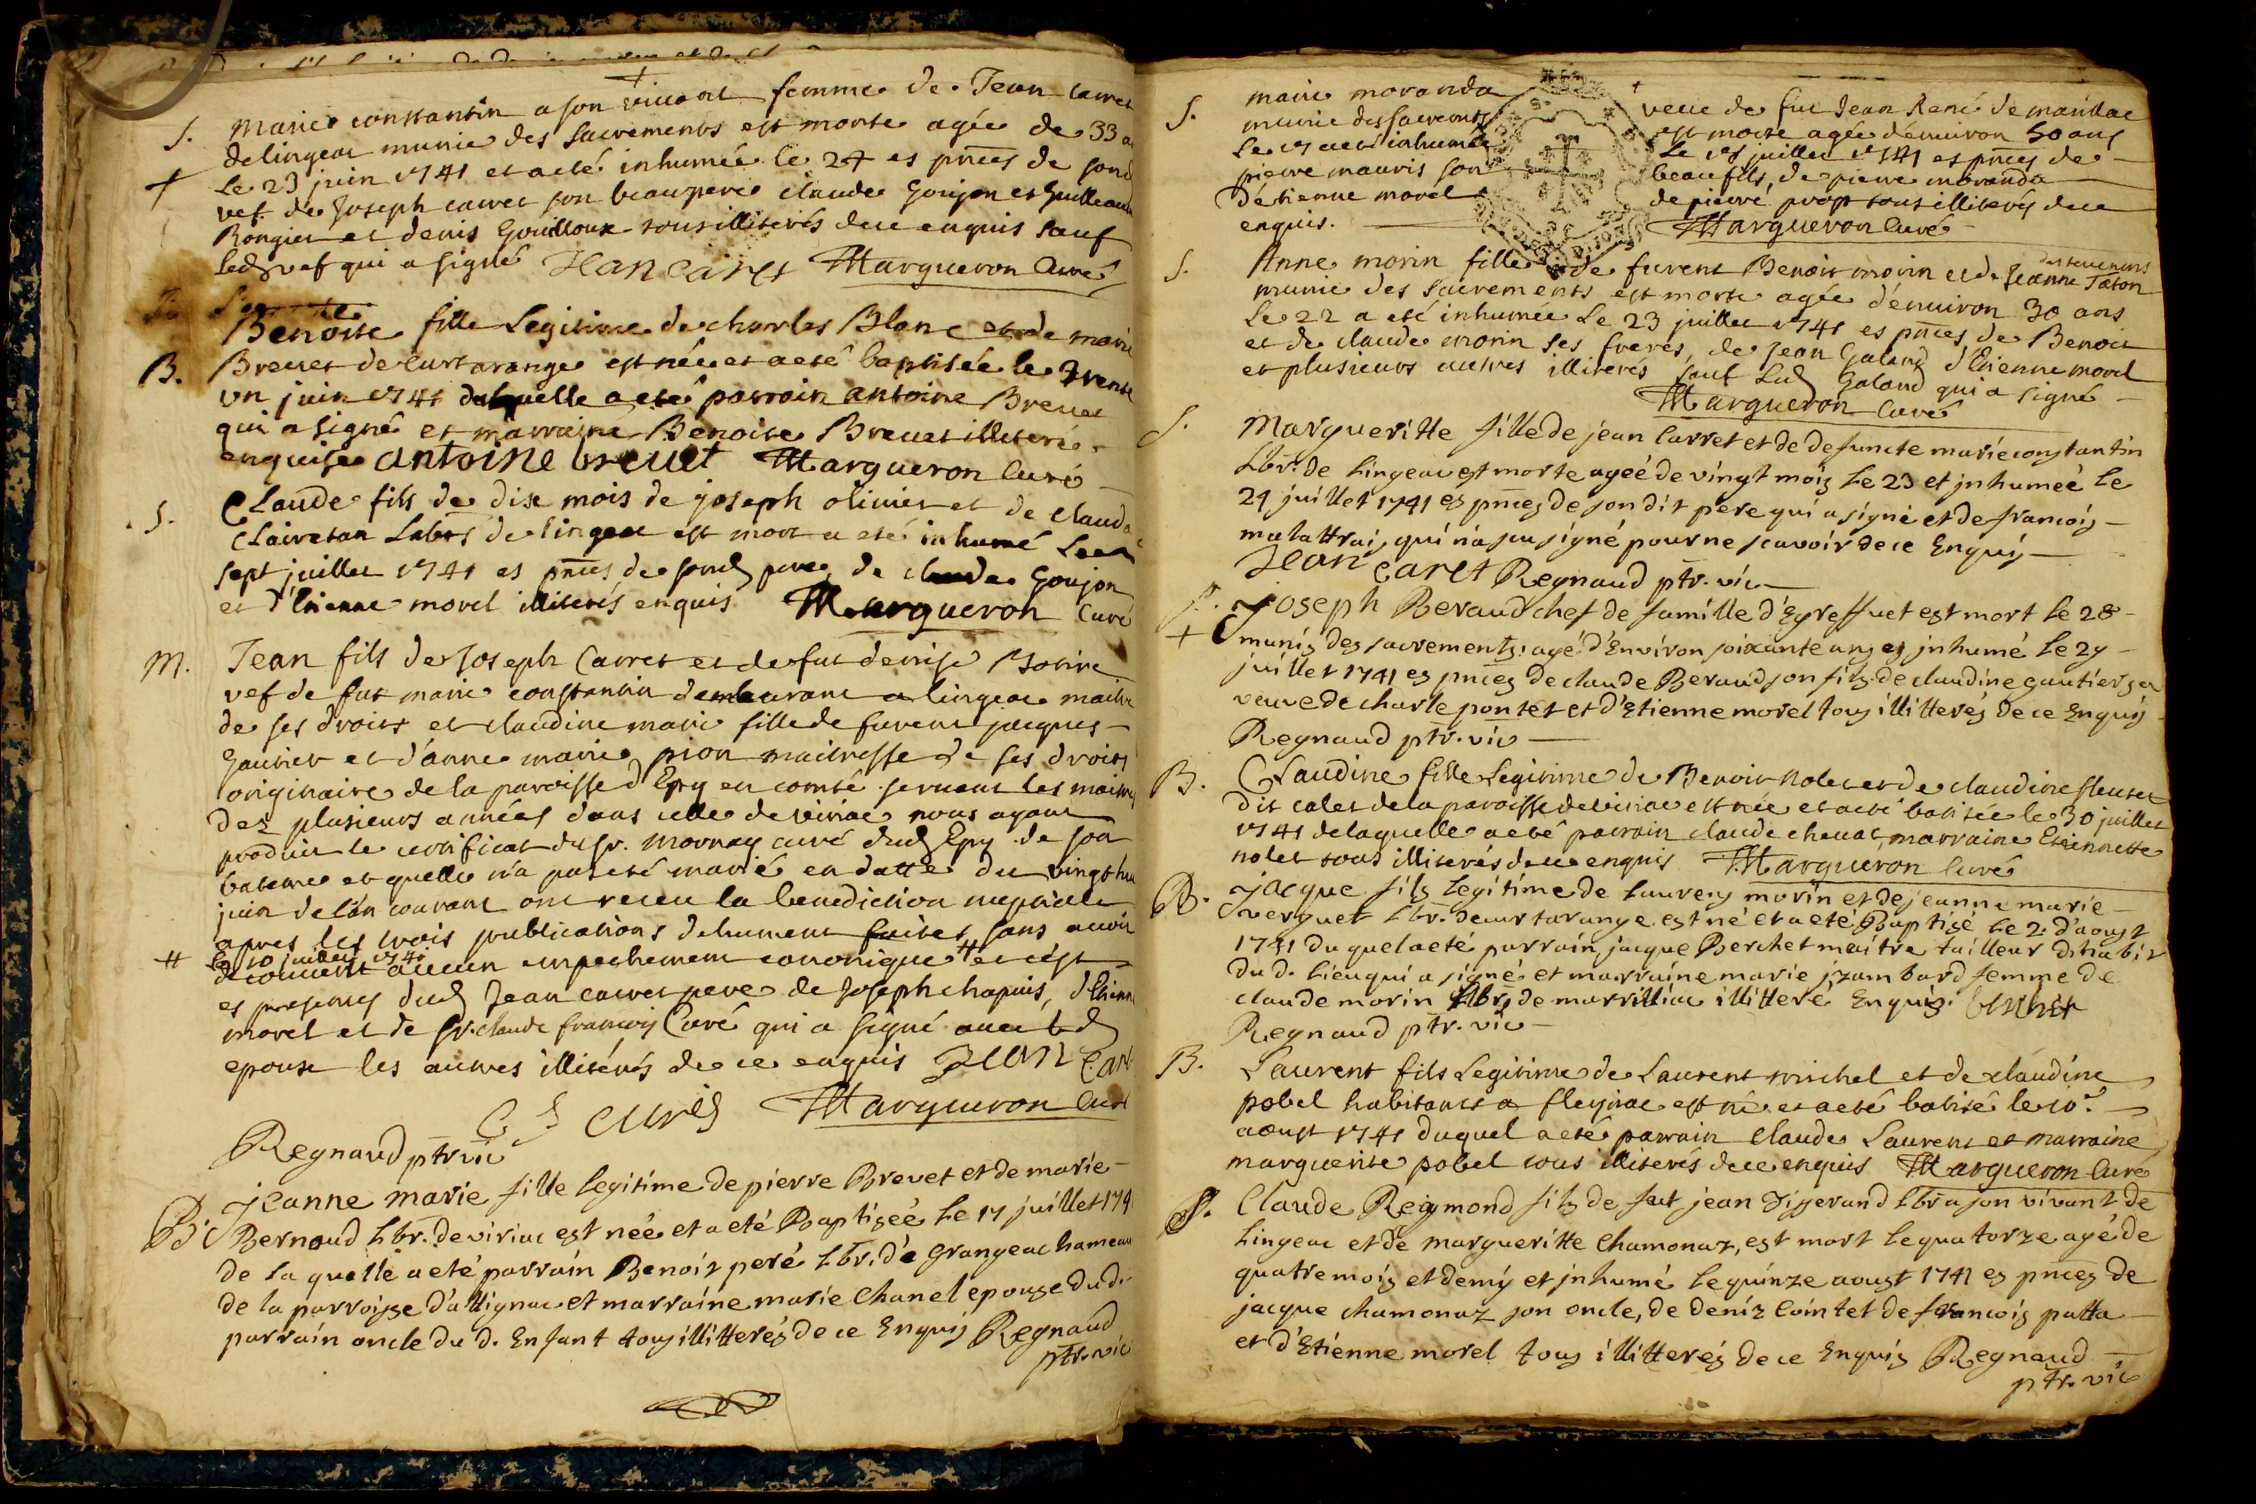 S. Marie constantin a son vivant femme de Jean carret
delingeac munie des sacrements est morte agée de 33 a
+ Le 23 juin 1741 et a eté inhumée le 24 es pnces de sond
vef de Joseph carret son beau pere claude Goujon et Guilleaume
Rongier et denis Gouilloux tous illiterés dece enquis sauf
Led vef qui a signé Jean Caret Margueron Curé
B. Benoite fille Legitime de charles Blanc et de marie
Brevet de Curtarange est née et a eté baptisée le trente
un juin 1741 de laquelle a eté parrain antoine Brevet
qui a signé et marraine Benoite Brevet illiterée
enquise antoine brevet Margueron Curé
S. Claude fils de dix mois de joseph olivier et de clauda
Clairetan Labrs de lingeac est mort a eté inhumé Le
sept juillet 1741 es pnces de sond pere, de claude Goujon
et d'Etienne morel illiterés enquis Margueron Curé
M. Jean fils de Joseph Carret et de fut denise
vef de fut marie constantin demeurant a lingeac maitre
de ses droits et claudine marie fille de furent jacques
Gautier et d'anne marie pion maitresse de ses droits
originaire de la paroisse d'Epy en comté servant les maitres
dez plusieurs années dans celle de viriac nous ayant
produit le certificat du sr. Mornay curé dud Epy de son
bateme et quelle n'a pas eté marié en datte du vingt hui
juin de l'an courant ont receu la benediction nuptiale
apres les trois publications dehument faites sans avoir
# le 10 juillet 1741
decouvert aucun empechement canonique # et c'est
es presences dud Jean carret pere de Joseph chapuis, d'Etienne
morel et de sr. claude francois Curé qui a signé avec led
epoux les autres illiterés de ce enquis Jean Caret
C f curés Margueron Curé
Regnaud ptr vic
B. jeanne marie fille legitime de pierre Brevet et de marie
Bernoud Lbr. de viriac est née et a eté Baptisée le 17 juillet 174
de la quelle a eté parrain Benoit peré Lbr. de grangeac hameau
de la parroisse d'attignac et marraine marie Chanel epouse du d.
parrain oncle du d. Enfant tous illitterés de ce Enquis Regnaud
ptr. vic
S. marie moranda + veue de fut Jean René de marillac
munie des sacrements est morte agée denuiron 50 ans
Le 15 a eté inhumée Le 16 juillet 1741 es pnces de
pierre mauris son beaufils, de pierre moranda
d'étienne morel de pierre prost tous illiterés dece
enquis. Margueron Curé
S. Anne morin fille de furent Benoit morin et de Jeanne Taton
munie des sacrements est morte agée d'enuiron 30 ans
Le 22 a eté inhumée Le 23 juillet 1741 es pnces de Benoit
et de claude morin ses freres, de Jean Galand d'Etienne morel
et plusieurs autres illiterés sauf Led Galand qui a signé
Margueron Curé
S. Margueritte fille de jean Carret et de defuncte marie constantin
Lbr. de Lingeac est morte ageé de vingt mois le 23 et jnhumeé le
24 juillet 1741 es pnces de son dit pere qui a signé et de francois
malattrai, qui n'a pu signé pour ne scavoir de ce Enquis
Jean Caret Regnaud ptr. vic
S. + Joseph Beraud chef de famille d'Eyreffuet est mort le 28
munis des sacrements, agé d'Environ soixante ans es jnhumé le 29
juillet 1741 es pnces de claude Beraud son fils de claudine gautier sa
veuve de charle pontet et d'Etienne morel tous illitterés de ce Enquis
Regnaud ptr. vic
B. Claudine fille Legitime de Benoit nolet et de claudine fleuret
dit calet de la paroisse de viriac est née et a eté batisée le 30 juillet
1741 de laquelle a eté parrain claude chevat, marraine Etiennette
nolet tous illiterés dece enquis Margueron Curé
B. Jacque fils legitime de Laurens morin et de jeanne marie
verguet Lbr. de curtarange est né et a eté Baptisé le 2 d'aoust
1741 du quel a eté parrain jacque Berchet maitre tailleur d'habit
du d. lieu qui a signé et marraine marie jzambard femme de
claude morin Lbr. de marrilliac illitteré Enquis. berchet
Regnaud ptr. vic
B. Laurent fils Legitime de Laurent michel et de claudine
pobel habitants a fleyriac est né et a eté batisé le 10e
aoust 1741 duquel a eté parrain Claude Laurent et marraine
marguerite pobel tous illiterés dece enquis Margueron Curé
S. Claude Reymond fils de feut jean Tisserand Lbr a son vivant de
Lingeac et de margueritte Chamonaz, est mort le quatorze agé de
quatre mois et demy et jnhumé le quinze aoust 1741 es pnces de
jacque chamonaz son oncle, de deniz Cointet de francois patta
et d'Etienne morel tous illitterés de ce Enquis Regnaud
ptr. vic